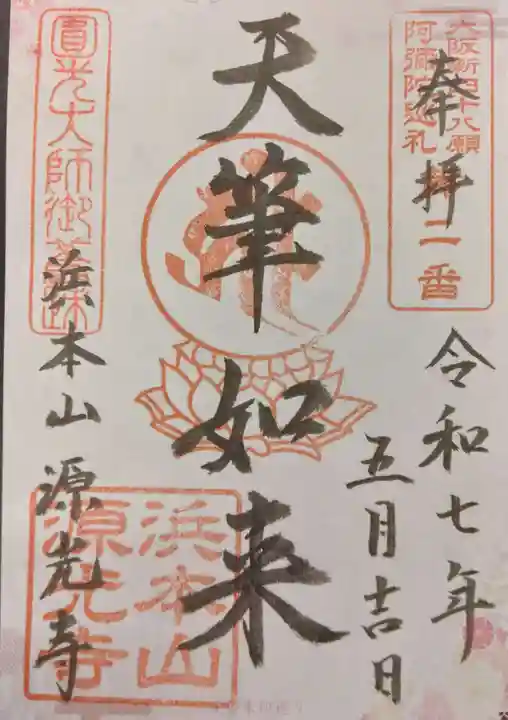 奉拝
大阪新四十八願
阿彌陀巡礼
二番
令和七年
五月吉日
天筆如来
圓光大師御舊跡
浜本山 源光寺
浜本山
源光寺